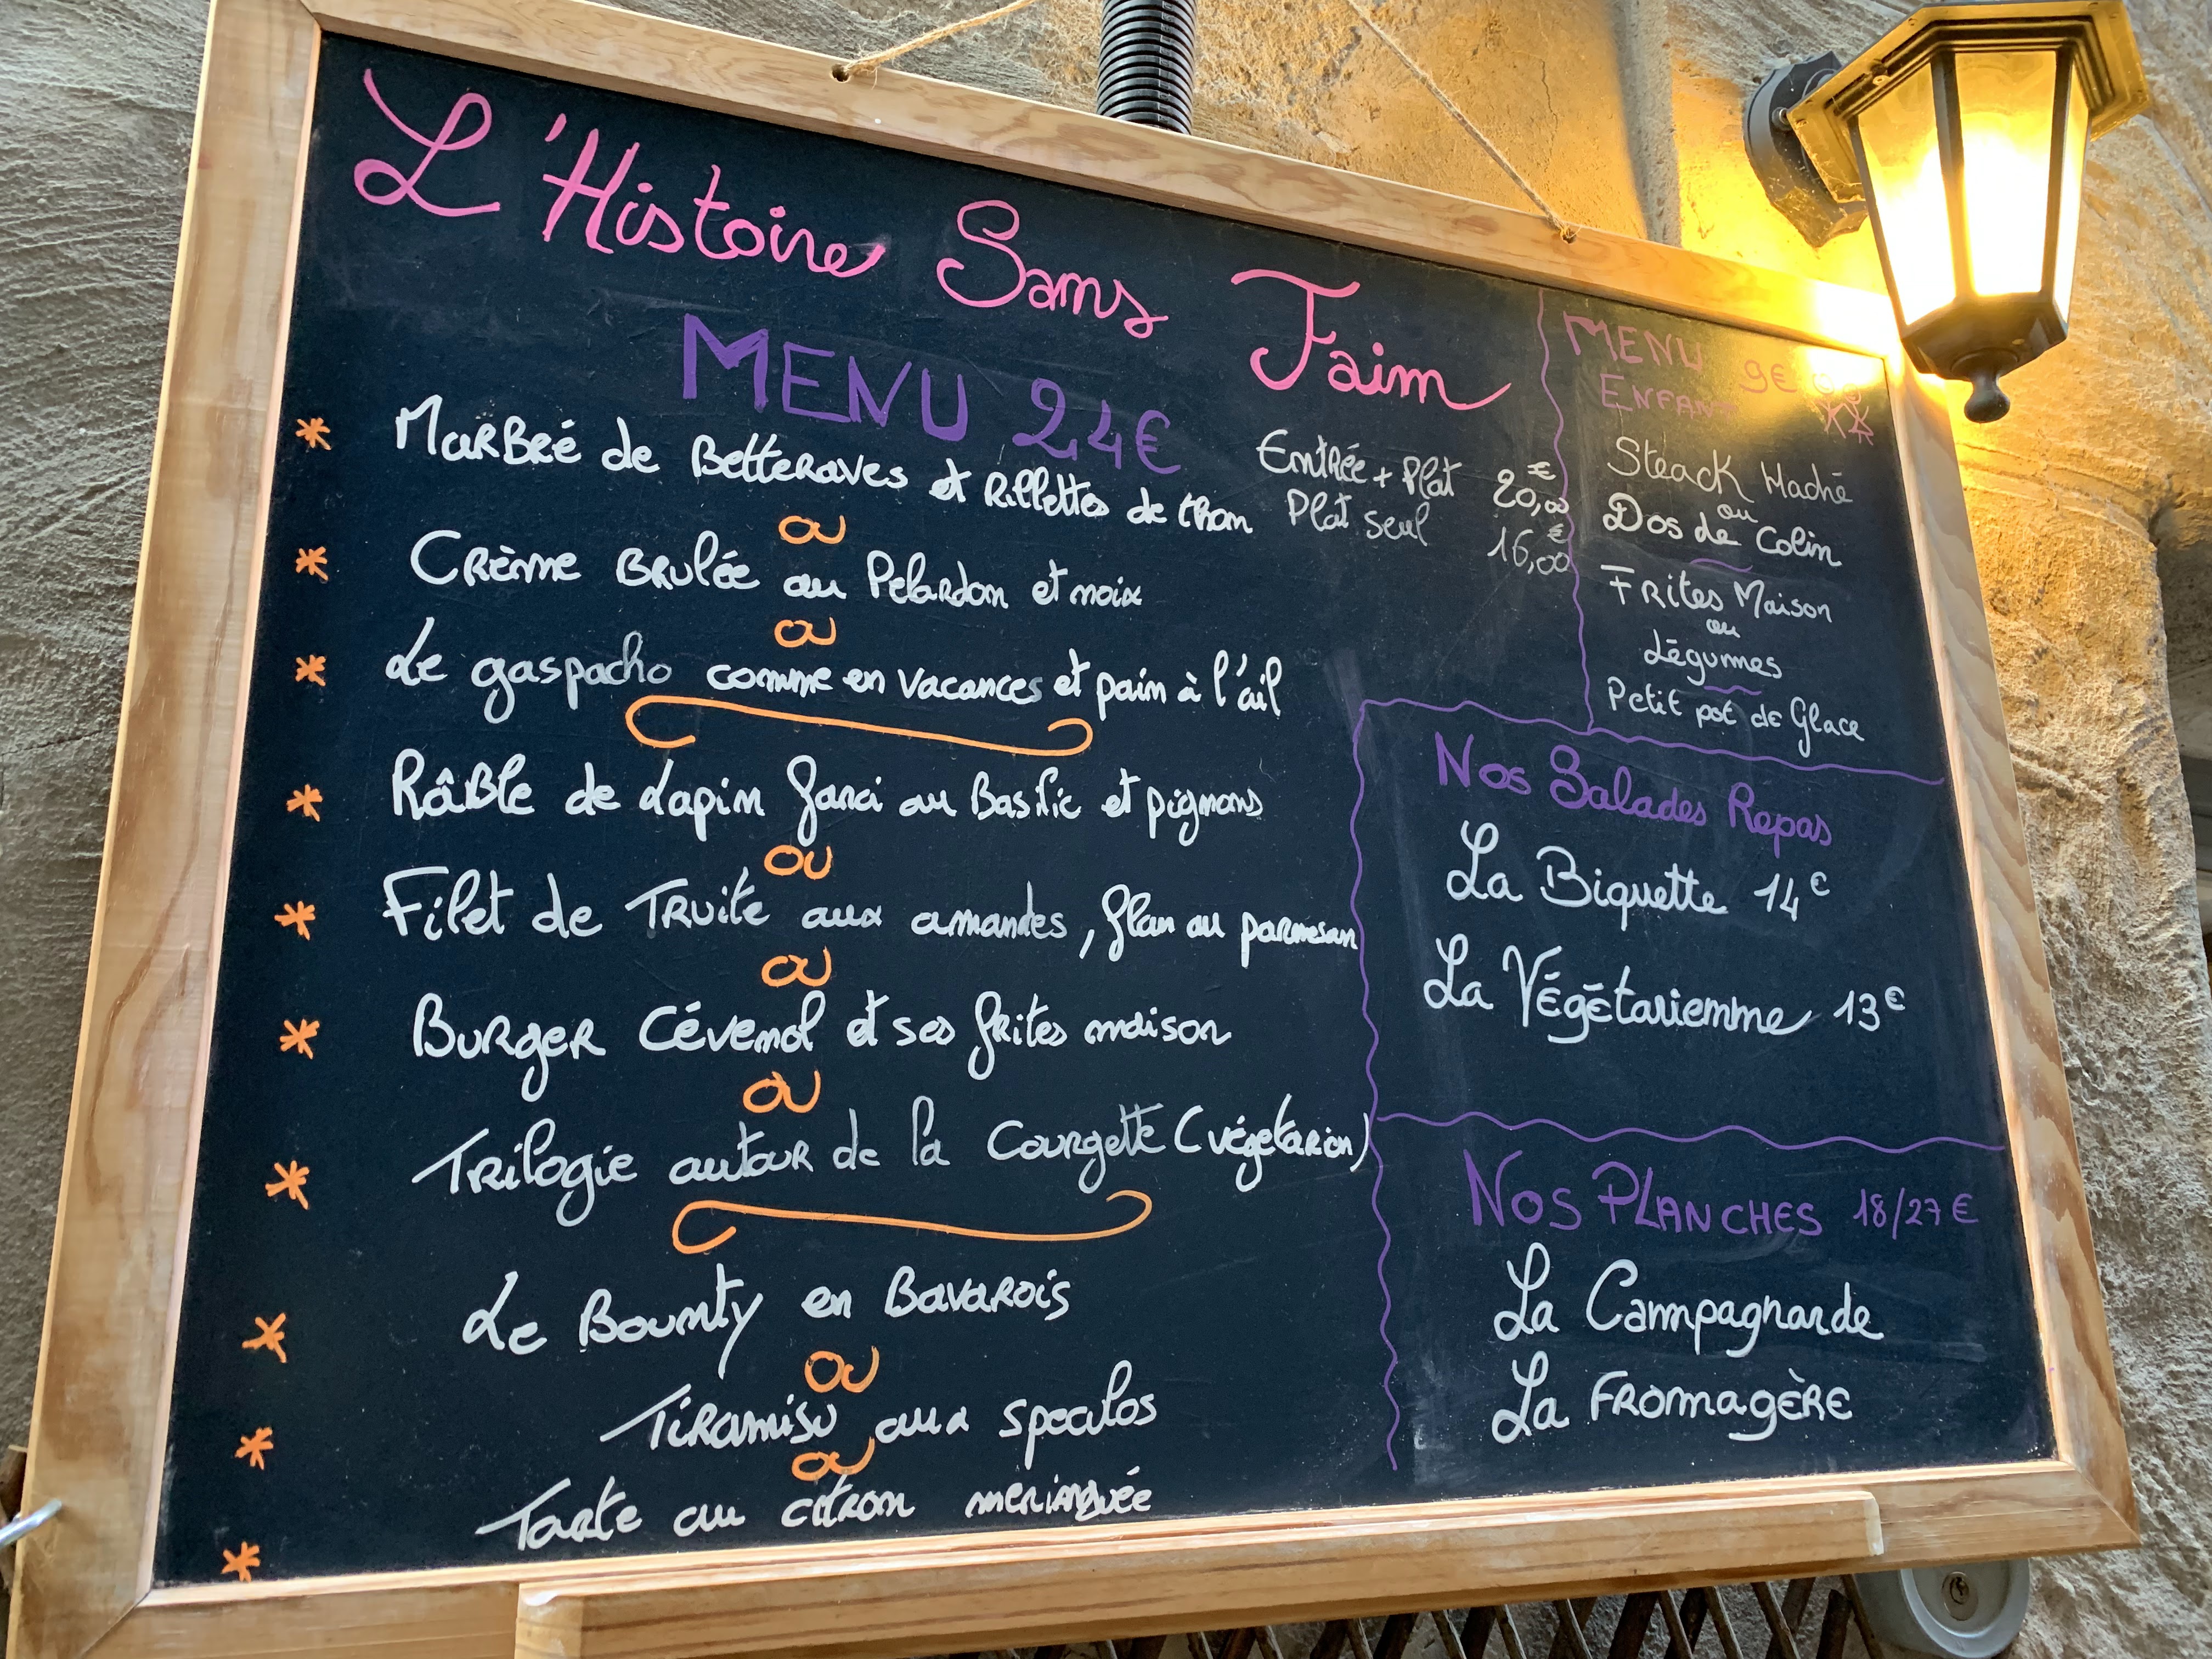 L'Histoire Sans Faim
MENU 24€
* Marbré de Betteraves et Rillettes de thon
ou
* Crème Brulée au Pelardon et noix
ou
* Le gaspacho comme en vacances et pain à l'ail
* Râble de Lapin farci au Basilic et pignons
ou
* Filet de Truite aux amandes, flan au parmesan
ou
* Burger Cévenol et ses frites maison
ou
* Trilogie autour de la Courgette (végétarien)
* Le Bounty en Bavarois
ou
* Tiramisu aux speculos
ou
* Tarte au citron meringuée
Entrée + Plat 20,00€
Plat seul 16,00€
MENU 9€
ENFANT
Steack Haché
ou
Dos de Colin
Frites Maison
ou
Légumes
Petit pot de Glace
Nos Salades Repas
La Biquette 14€
La Végétarienne 13€
NOS PLANCHES 18/27€
La Campagnarde
La Fromagère